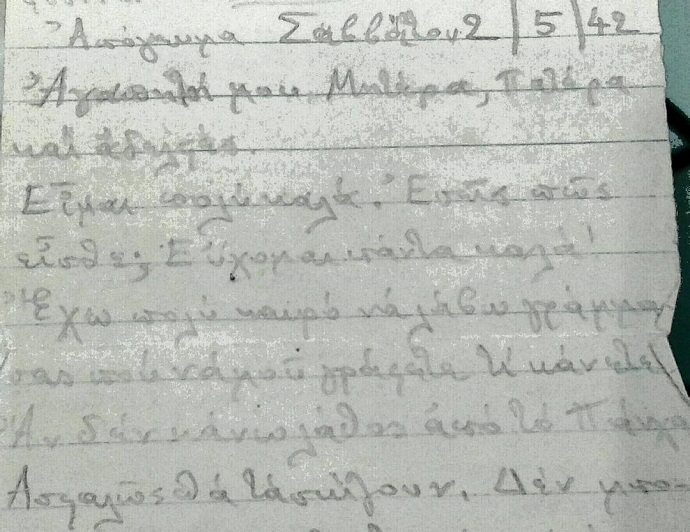 Ἀπόγευμα Σαββάτου 2/5/42
Ἀγαπητή μου Μητέρα, Πατέρα
καί ἀδελφές.
Εἶμαι πολύ καλά. Ἐσεῖς πῶς
εἶσθε; Εὔχομαι πάντα καλά!
Ἔχω πολύ καιρό νά λάβω γράμμα
σας πού νά μοῦ γράφετε τί κάνετε
Ἄν δέν κάνω λάθος ἀπό τό
Ἀσφαλῶς θά τά Δέν μπο-